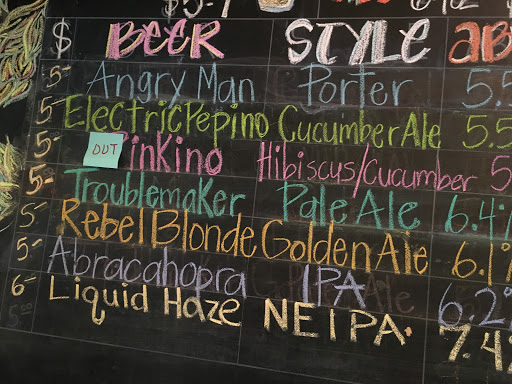 $ BEER STYLE AB
5- Angry Man Porter 5.5
5- Electric Pepino Cucumber Ale 5.5
5- OUT Pinkino Hibiscus/Cucumber 5
5- Troublemaker Pale Ale 6.4%
5- Rebel Blonde Golden Ale 6.1%
5- Abracahopra IPA 6.2%
6- Liquid Haze NEIPA. 7.4